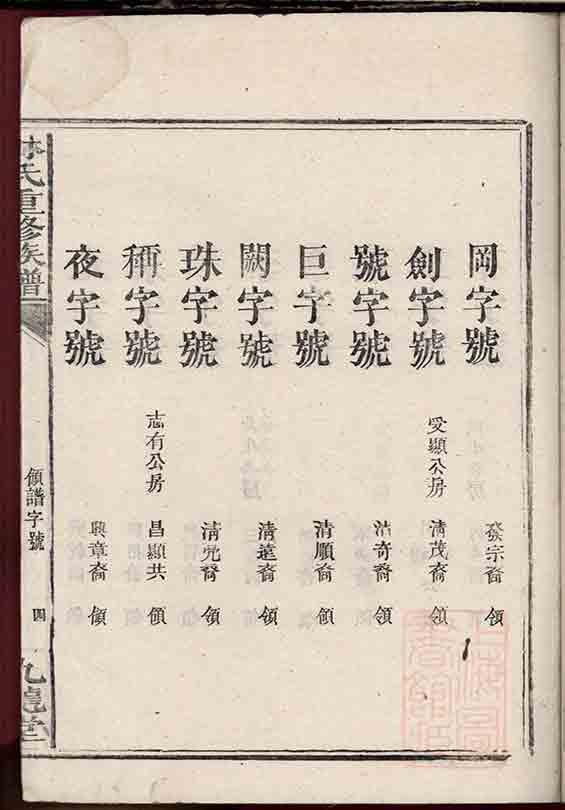 岡字號 發宗裔 領
劍字號 受顯公房 清茂裔 領
號字號 清奇裔 領
巨字號 清順裔 領
闕字號 清蓮裔 領
珠字號 清光裔 領
稱字號 志有公房 昌顯共 領
夜字號 興章裔 領
氏重修族譜 領譜字號 四 九龍堂